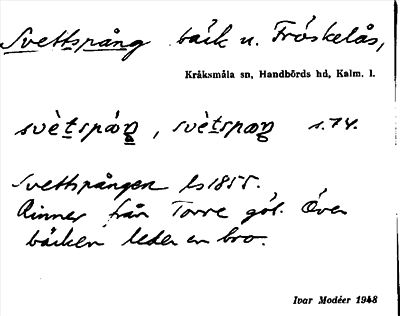 Svettspång bäck n. Fröskelås,
Kråksmåla sn, Handbörds hd, Kalm. l.
svètspáŋ, svètspæŋ s. 74.
Svettspången ls 1855.
Rinner från Torre göl. Över
bäcken leder en bro.
Ivar Modéer 1948